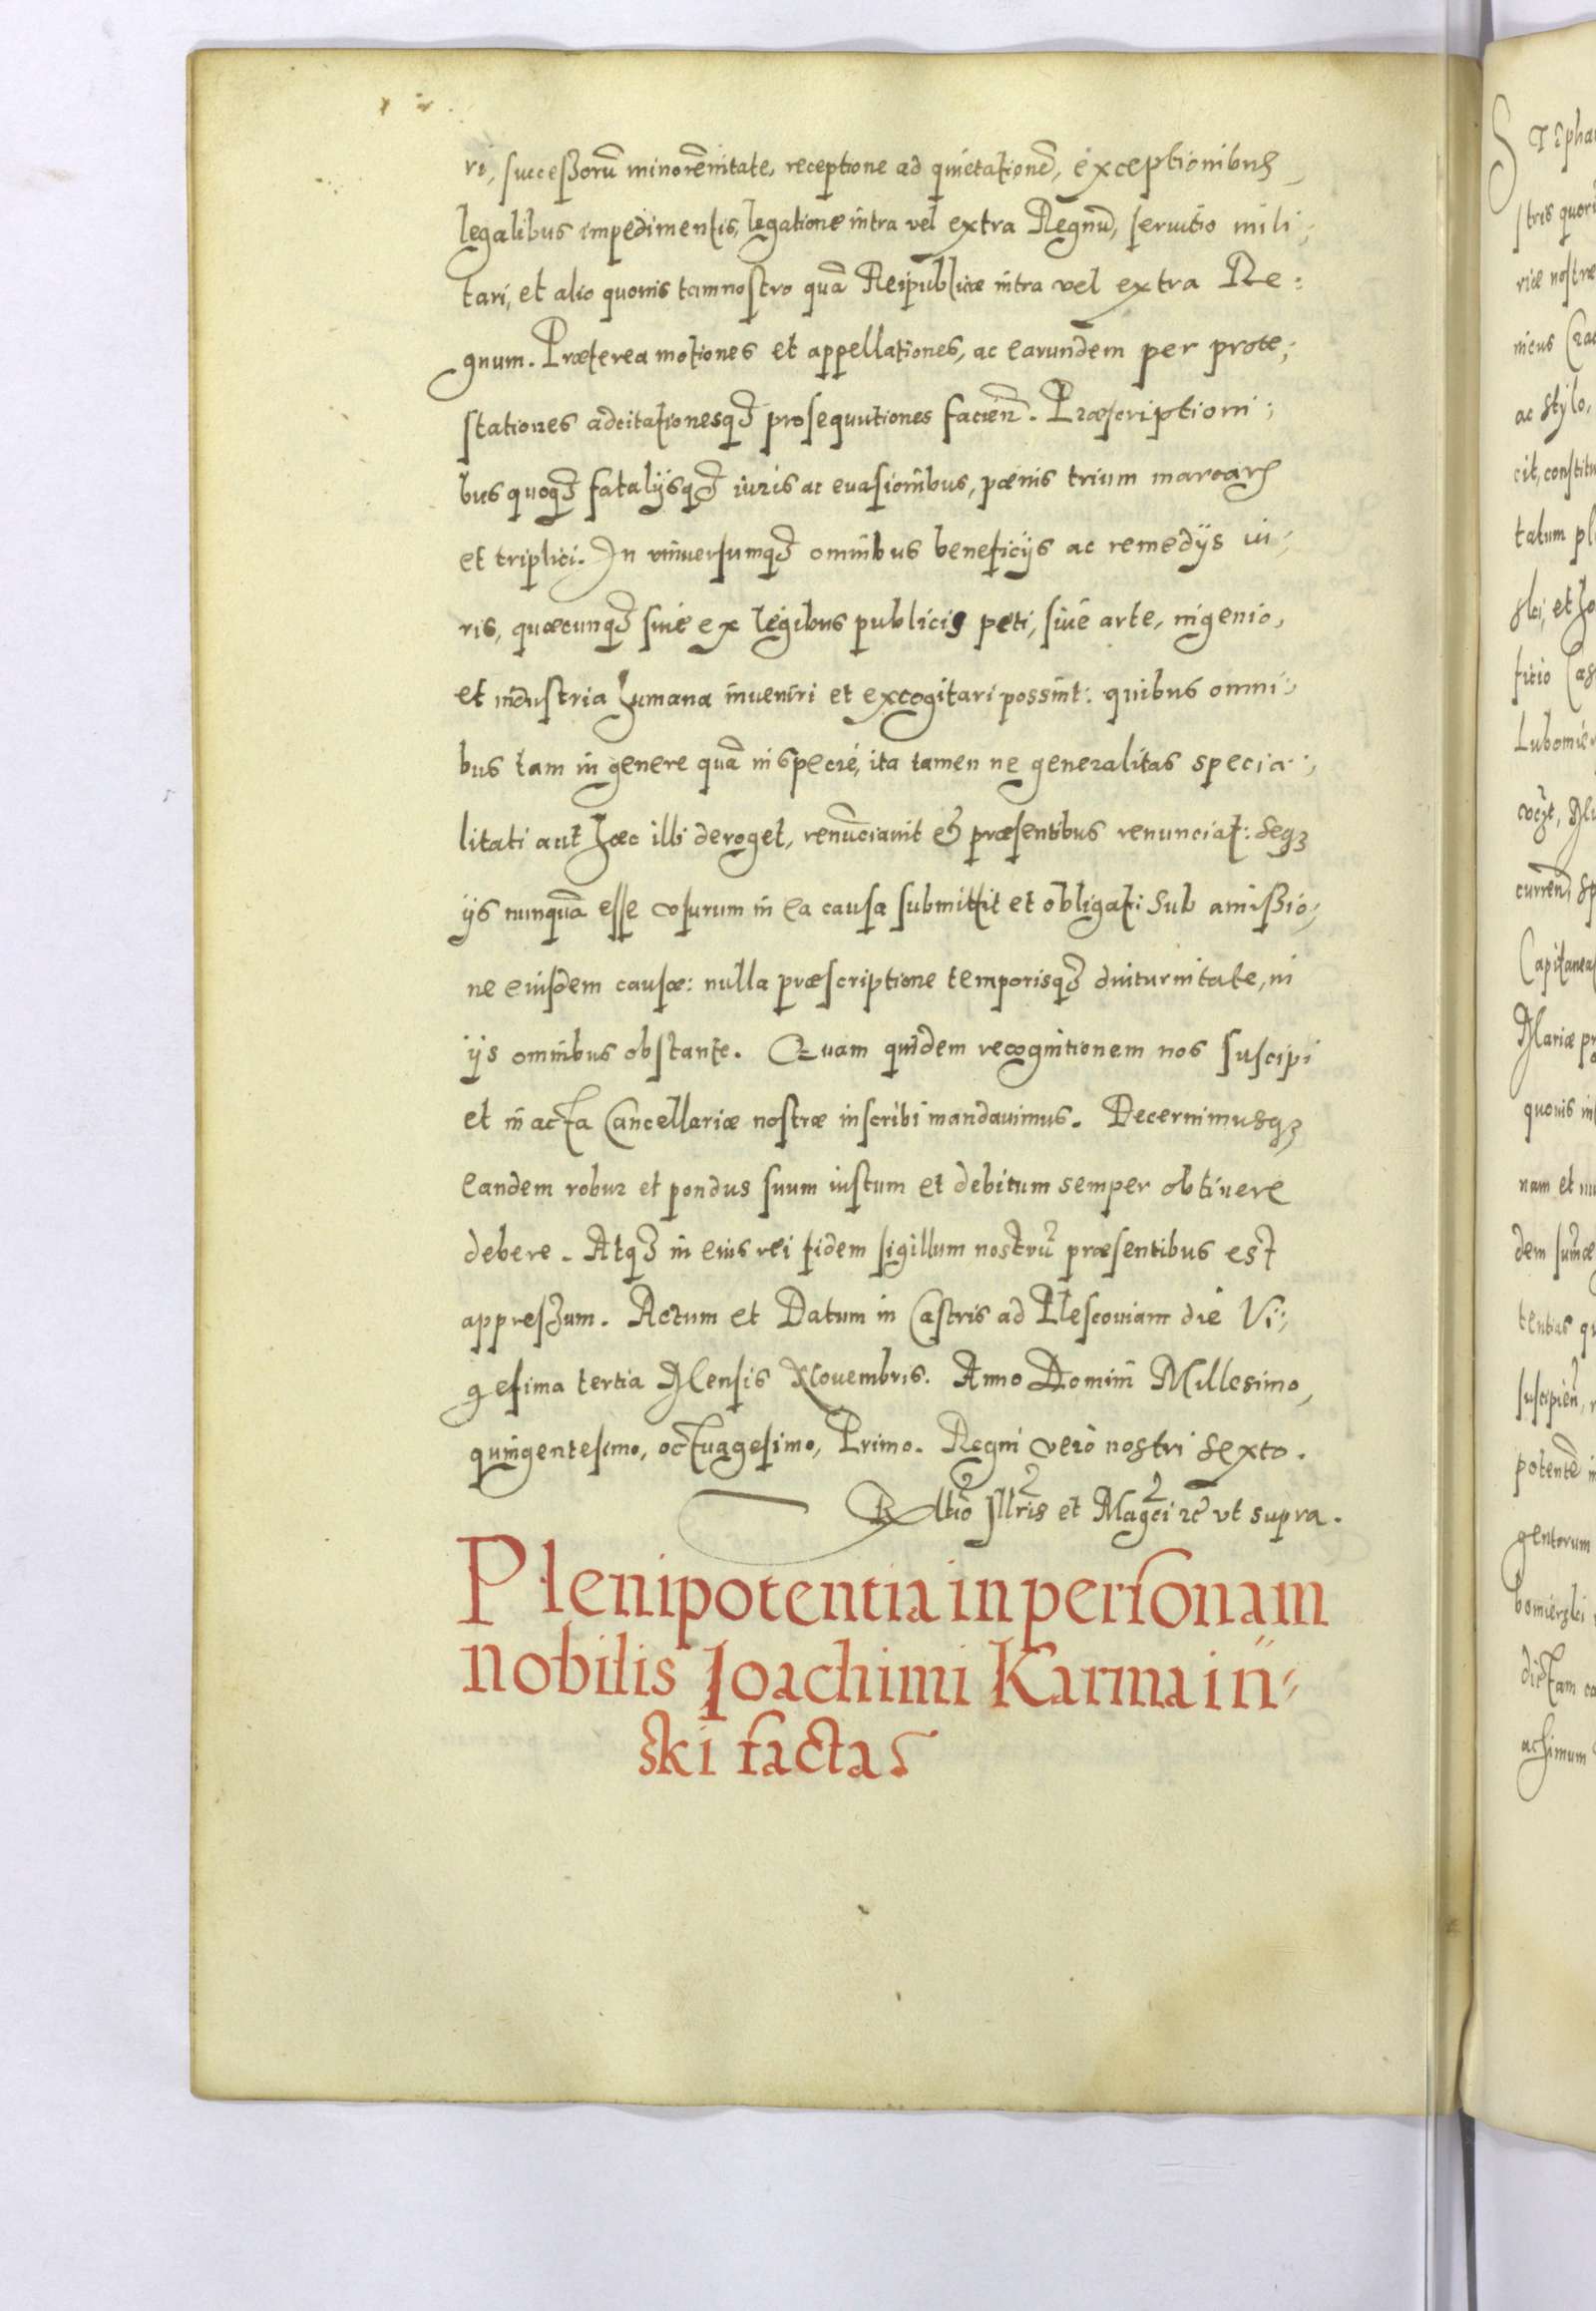 ri, successorũ minorẽnitate, receptione ad quietationẽ, exceptionibus
legalibus impedimentis, legatione intra vel extra Regnũ, seruitio mili;
tari, et alio quouis tam nostro quã Reipublicæ intra vel extra Re:
gnum. Præterea motiones et appellationes, ac earundem per prote;
stationes adcitationesq3 prosequutiones facien. Præscriptioni;
bus quoq3 fatalijsq3 iuris ac euasionibus, pœnis trium marcarũ
et triplici. In vniuersumq3 omnibus beneficijs ac remedijs iu;
ris, quæcunq3 siue ex legibus publicis peti, siue arte, ingenio,
et industria humana inueniri et excogitari possint: quibus omni;
bus tam in genere quã in specie, ita tamen ne generalitas specia;
litati aut hæc illi deroget, renũciauit & præsentibus renunciat: seq3
ijs nunquã esse vsurum in ea causa submittit et obligat: sub amissio;
ne eiusdem causæ: nulla præscriptione temporisq3 diuturnitate, in
ijs omnibus obstante. Quam quidem recognitionem nos suscipi
et in acta Cancellariæ nostræ inscribi mandauimus. Decernimusq3
eandem robur et pondus suum iustum et debitum semper obtinere
debere. Atq3 in eius rei fidem sigillum nostrũ præsentibus est
appressum. Actum et Datum in Castris ad Plescouiam die Vi;
gesima tertia Mensis Nouembris. Anno Domini Millesimo,
quingentesimo, octuagesimo, Primo. Regni vero nostri sexto.
Rltio Illris et Magci zc vt supra.
Plenipotentia in personam
nobilis Ioachimi Karmain
ski facta